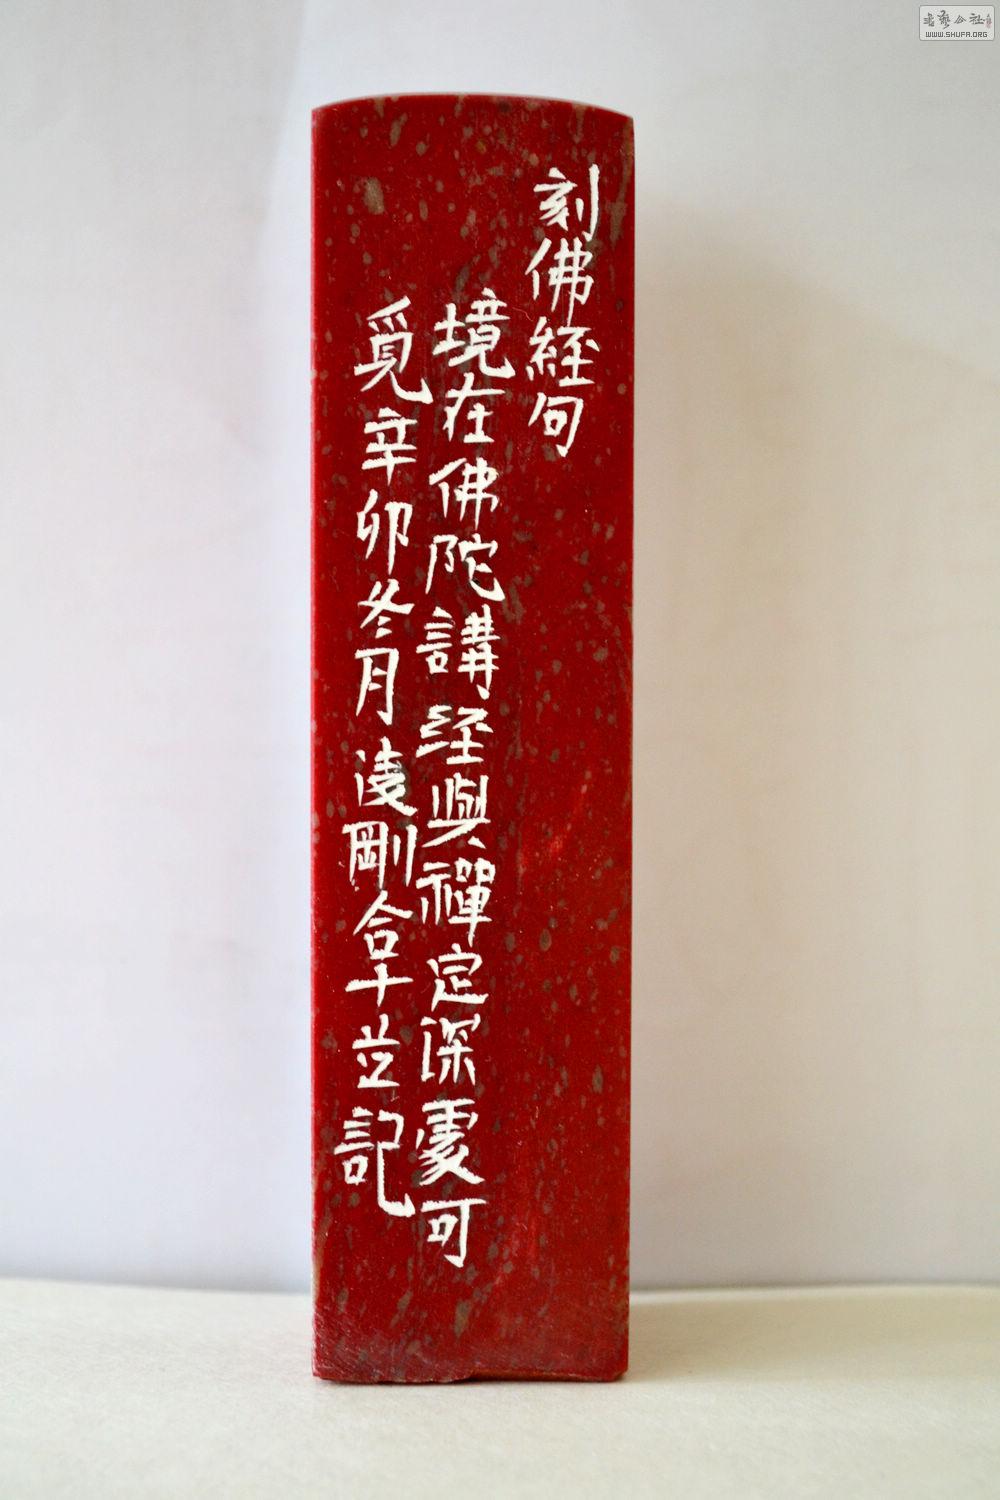 刻佛經句
境在佛陀講經與禪定深處可
覓辛卯冬月淩剛拿并記
書藝公社
WWW.SHUFA.ORG